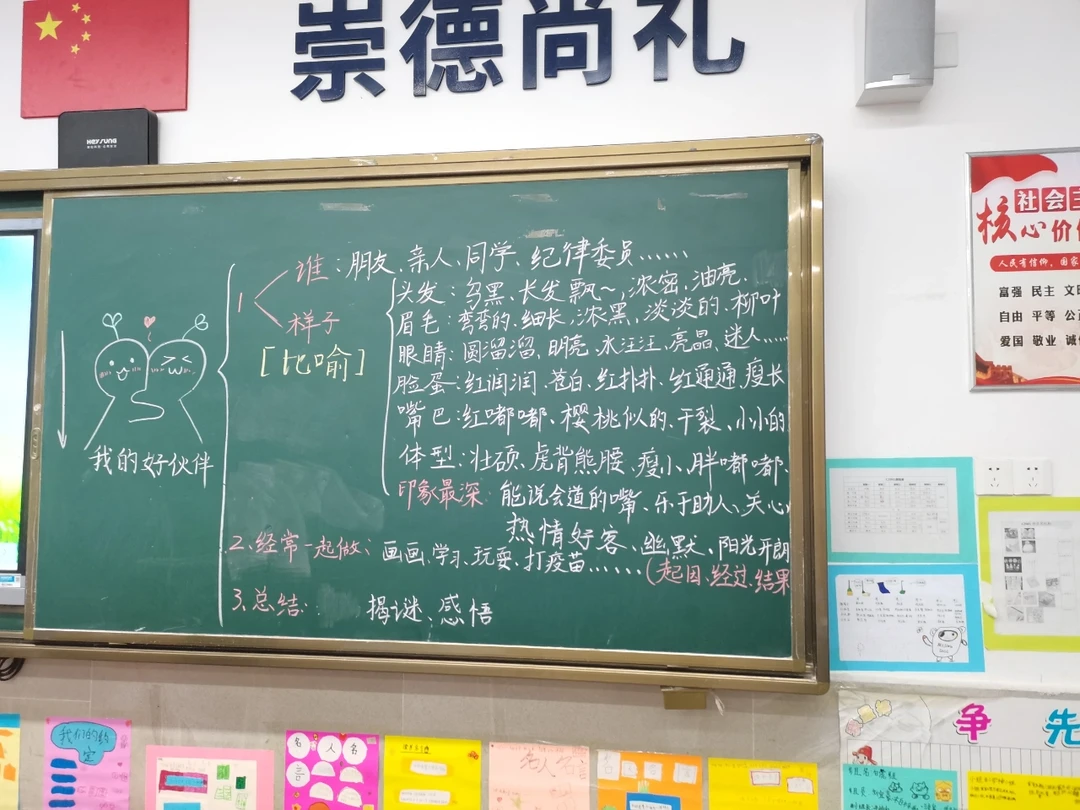 崇德尚礼
HEYSUNG
社会主
核心价值
人民有信仰，国家
富强 民主 文明
自由 平等 公正
爱国 敬业 诚信
我的好伙伴
1
谁：朋友、亲人、同学、纪律委员……
样子
[比喻]
头发：乌黑、长发飘~，浓密，油亮.
眉毛：弯弯的、细长，浓黑，淡淡的、柳叶
眼睛：圆溜溜、明亮、水汪汪、亮晶、迷人……
脸蛋：红润润、苍白、红扑扑、红通通、瘦长
嘴巴：红嘟嘟、樱桃似的、干裂、小小的
体型：壮硕、虎背熊腰、瘦小、胖嘟嘟、
印象最深：能说会道的嘴、乐于助人、关心
热情好客、幽默、阳光开朗
2、经常一起做：画画、学习、玩耍、打疫苗……（起因、经过、结果
3、总结：揭谜、感悟
争 先
我们的约定
名人名言
名人名言